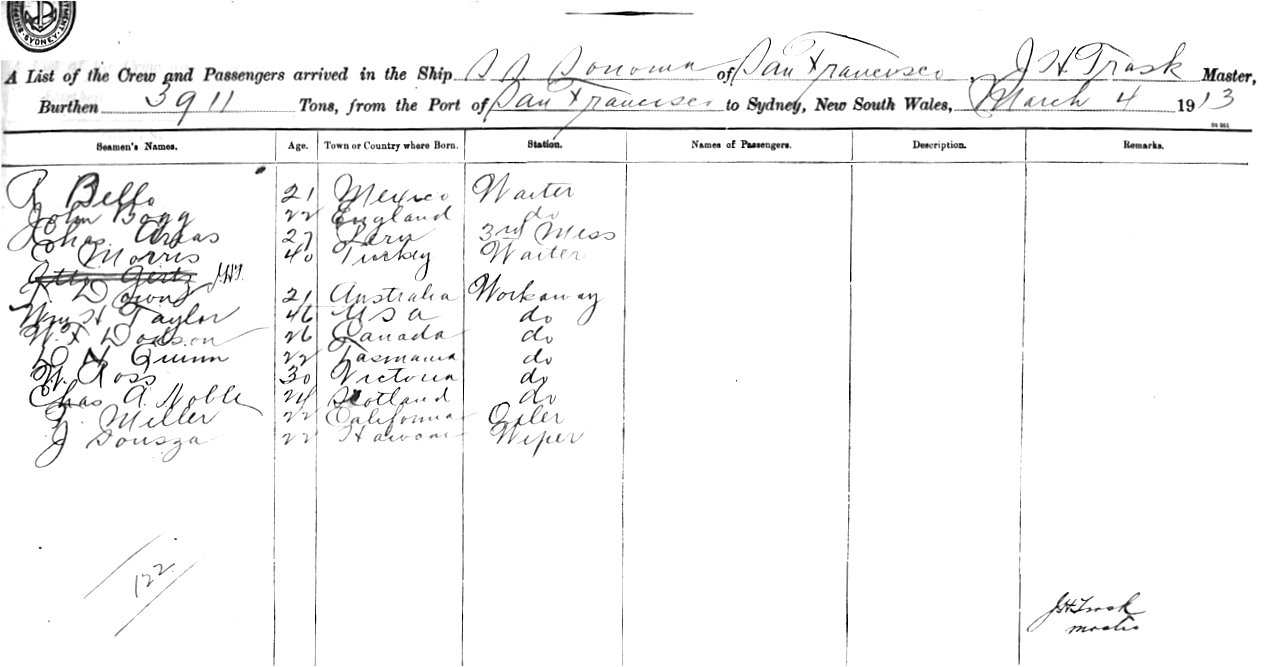 SYDNEY
A List of the Crew and Passengers arrived in the Ship S S Sonoma of San Francisco, J H Trask Master,
Burthen 3911 Tons, from the Port of San Francisco to Sydney, New South Wales, March 4 1913
Seamen's Names. Age. Town or Country where Born. Station. Names of Passengers. Description. Remarks.
R Bello 21 Mexico Waiter
John Bogg 22 England do
Chas Arias 27 Peru 3rd Mess
C Morris 40 Turkey Waiter
Otto Gertz J.H.T.
Downs 21 Australia Workaway
Wm H Taylor 46 U S A do
W. F Dodson 26 Canada do
D H Quinn 22 Tasmania do
W. Ross 30 Victoria do
Chas A. Noble 24 Scotland do
F. Miller 22 California Oiler
J Sousza 22 Hawaii Wiper
122
J H Trask
master